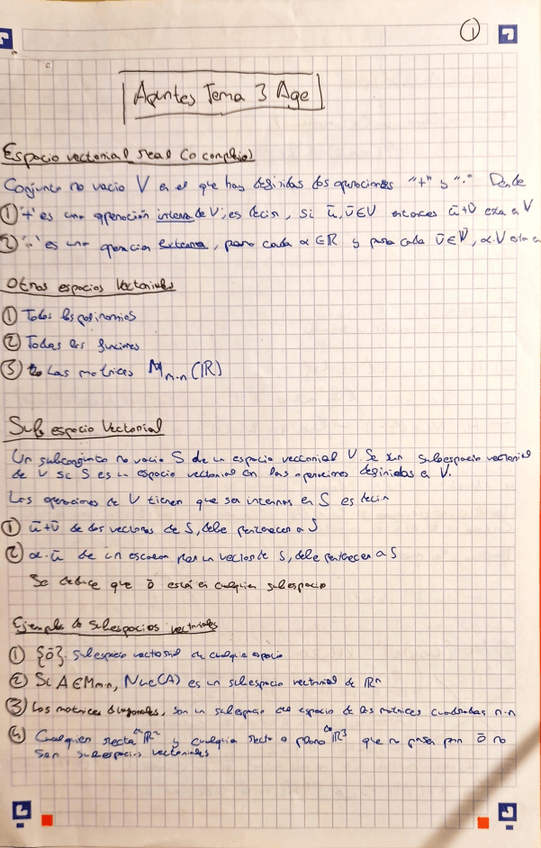 1
Apuntes Tema 3 Age
Espacio vectorial real (o complejo)
Conjunto no vacio V en el que hay definidas dos operaciones "+" y "·" Donde
① "+" es una operación interna de V, es decir, si ū, v̄ ∈ V entonces ū+v̄ esta en V
② "·" es una operacion externa, para cada α ∈ ℝ y para cada v̄ ∈ V, α·V esta en
Otros espacios vectoriales
① Todos los polinomios
② Todas las funciones
③ Las matrices M n·n (ℝ)
Subespacio Vectorial
Un subconjunto no vacio S de un espacio vectorial V. Se un subespacio vectorial
de V si S es un espacio vectorial con las operaciones definidas en V.
Las operaciones de V tienen que ser internas en S es decir
① ū+v̄ de dos vectores de S, debe pertenecer a S
② α·ū de un escalar por un vector de S, debe pertenecer a S
Se deduce que ō está en cualquier subespacio
Ejemplo de subespacios vectoriales
① {ō}: subespacio vectorial de cualquier espacio
② Si A ∈ Mm·n, Nuc(A) es un subespacio vectorial de ℝⁿ
③ Las matrices diagonales, son un subespacio del espacio de las matrices cuadradas n·n
④ Cualquier recta en ℝ² y cualquier recta o plano en ℝ³ que no pasen por ō no
son subespacios vectoriales